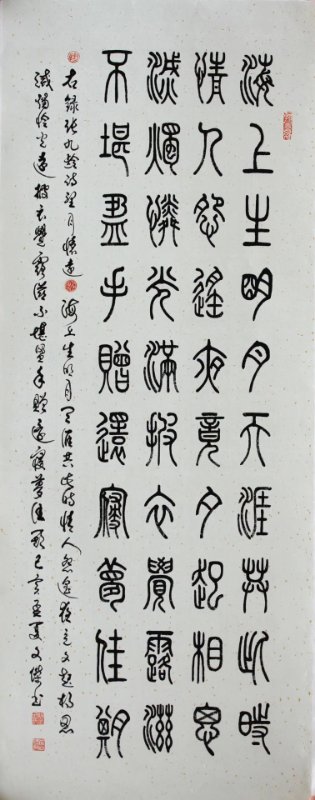 海上生明月天涯共此時
情人怨遙夜竟夕起相思
滅燭憐光滿披衣覺露滋
不堪盈手贈還寢夢佳期
右錄張九齡詩望月懷遠 海上生明月天涯共此時情人怨遙夜竟夕起相思
滅燭憐光滿披衣覺露滋不堪盈手贈還寢夢佳期己亥孟夏文傑书